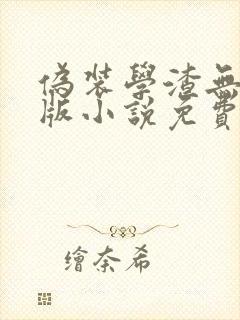 偽裝學渣無
版小說免費
繪奈希